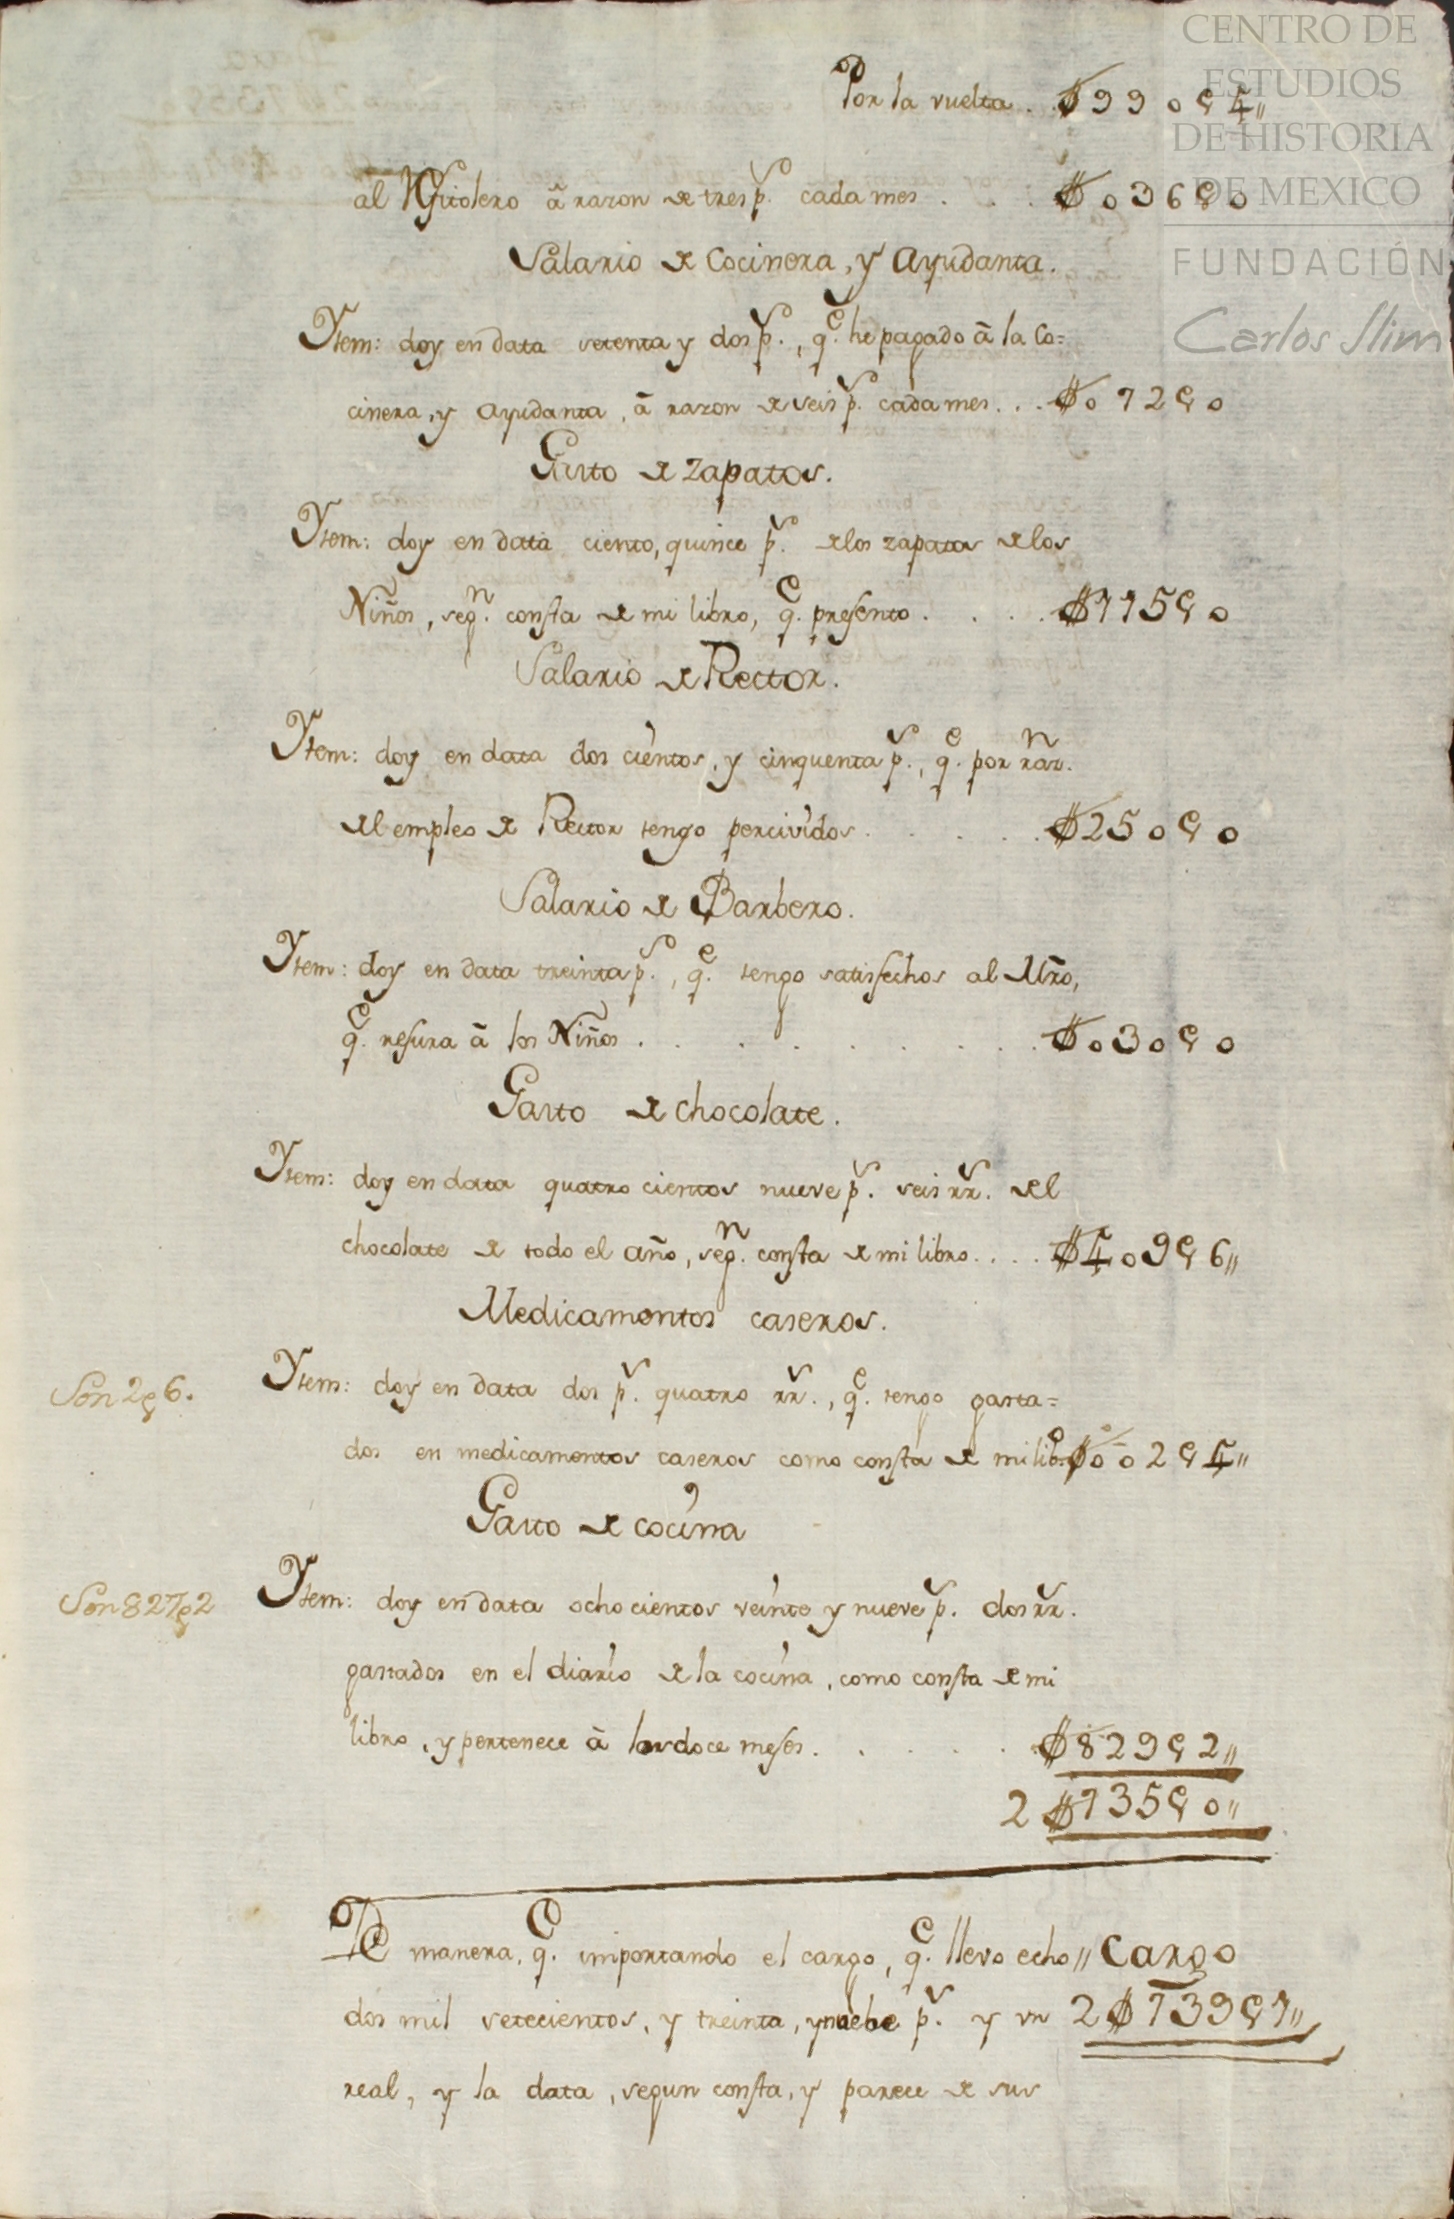 CENTRO DE
ESTUDIOS
DE HISTORIA
DE MEXICO
FUNDACIÓN
Carlos Slim
Por la vuelta . $990 4"
al à razon de tres p.s cada mes . . . $036 0
Salario de Cocinera, y Ayudanta.
Ytem: doy en data setenta y dos p.s, q.e he pagado à la Co=
cinera, y Ayudanta, à razon de seis p.s cada mes. . . $072 0
Gasto de Zapatos.
Ytem: doy en data ciento, quince p.s de los zapatos de los
Niños, seg.n consta de mi libro, q.e presento . . . . $115 0
Salario de Rector.
Ytem: doy en data dos cientos, y cinquenta p.s, q.e por raz.n
del empleo de Rector tengo percividos . . . . . $250 0
Salario de Barbero.
Ytem: doy en data treinta p.s, q.e tengo satisfechos al Mro,
q.e resura à los Niños . . . . . . . . $030 0
Gasto de chocolate.
Ytem: doy en data quatro cientos nueve p.s seis rr.s del
chocolate de todo el año, seg.n consta de mi libro. . . . $409 6"
Medicamentos caseros.
Son 2 6.
Ytem: doy en data dos p.s quatro rr.s, q.e tengo gasta=
dos en medicamentos caseros como consta de mi libro $002 4"
Gasto de cocina
Son 827 2
Ytem: doy en data ocho cientos veinte y nueve p.s dos rr.s
gastados en el diario de la cocina, como consta de mi
libro, y pertenece à los doce meses . . . . . $829 2"
2$735 0"
De manera, q.e importando el cargo, q.e llevo echo " Cargo
dos mil setecientos, y treinta, y nuebe p.s y un 2$739 1"
real, y la data, segun consta, y parece de sus